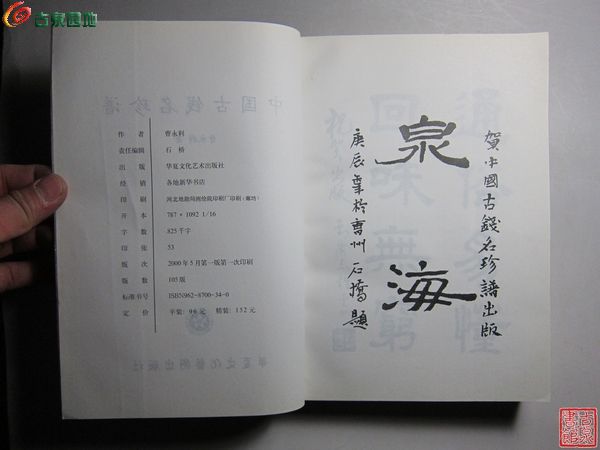 古泉园地
作 者 曹永利
责任编辑 石 桥
出 版 华夏文化艺术出版社
经 销 各地新华书店
印 刷 河北地勘局测绘院印刷厂印刷(廊坊)
开 本 787*1092 1/16
字 数 825千字
印 张 53
版 次 2000年5月第一版第一次印刷
印 数 105版
标准书号 ISBN962-8700-34-0
定 价 平装:96元 精装:132元
賀中國古錢名珍譜出版
泉海
庚辰年於曹州 石橋題